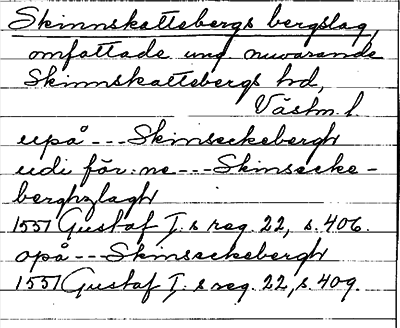 Skinnskattebergs bergslag,
omfattade ung. nuvarande
Skinnskattebergs hd,
Västm. l.
upå --- Skinseckebergh
udi för:ne --- Skinsecke-
berghzlagh
1551 Gustaf I:s reg. 22, s. 406.
opå --- Skinseckebergh
1551 Gustaf I:s reg. 22, s. 409.